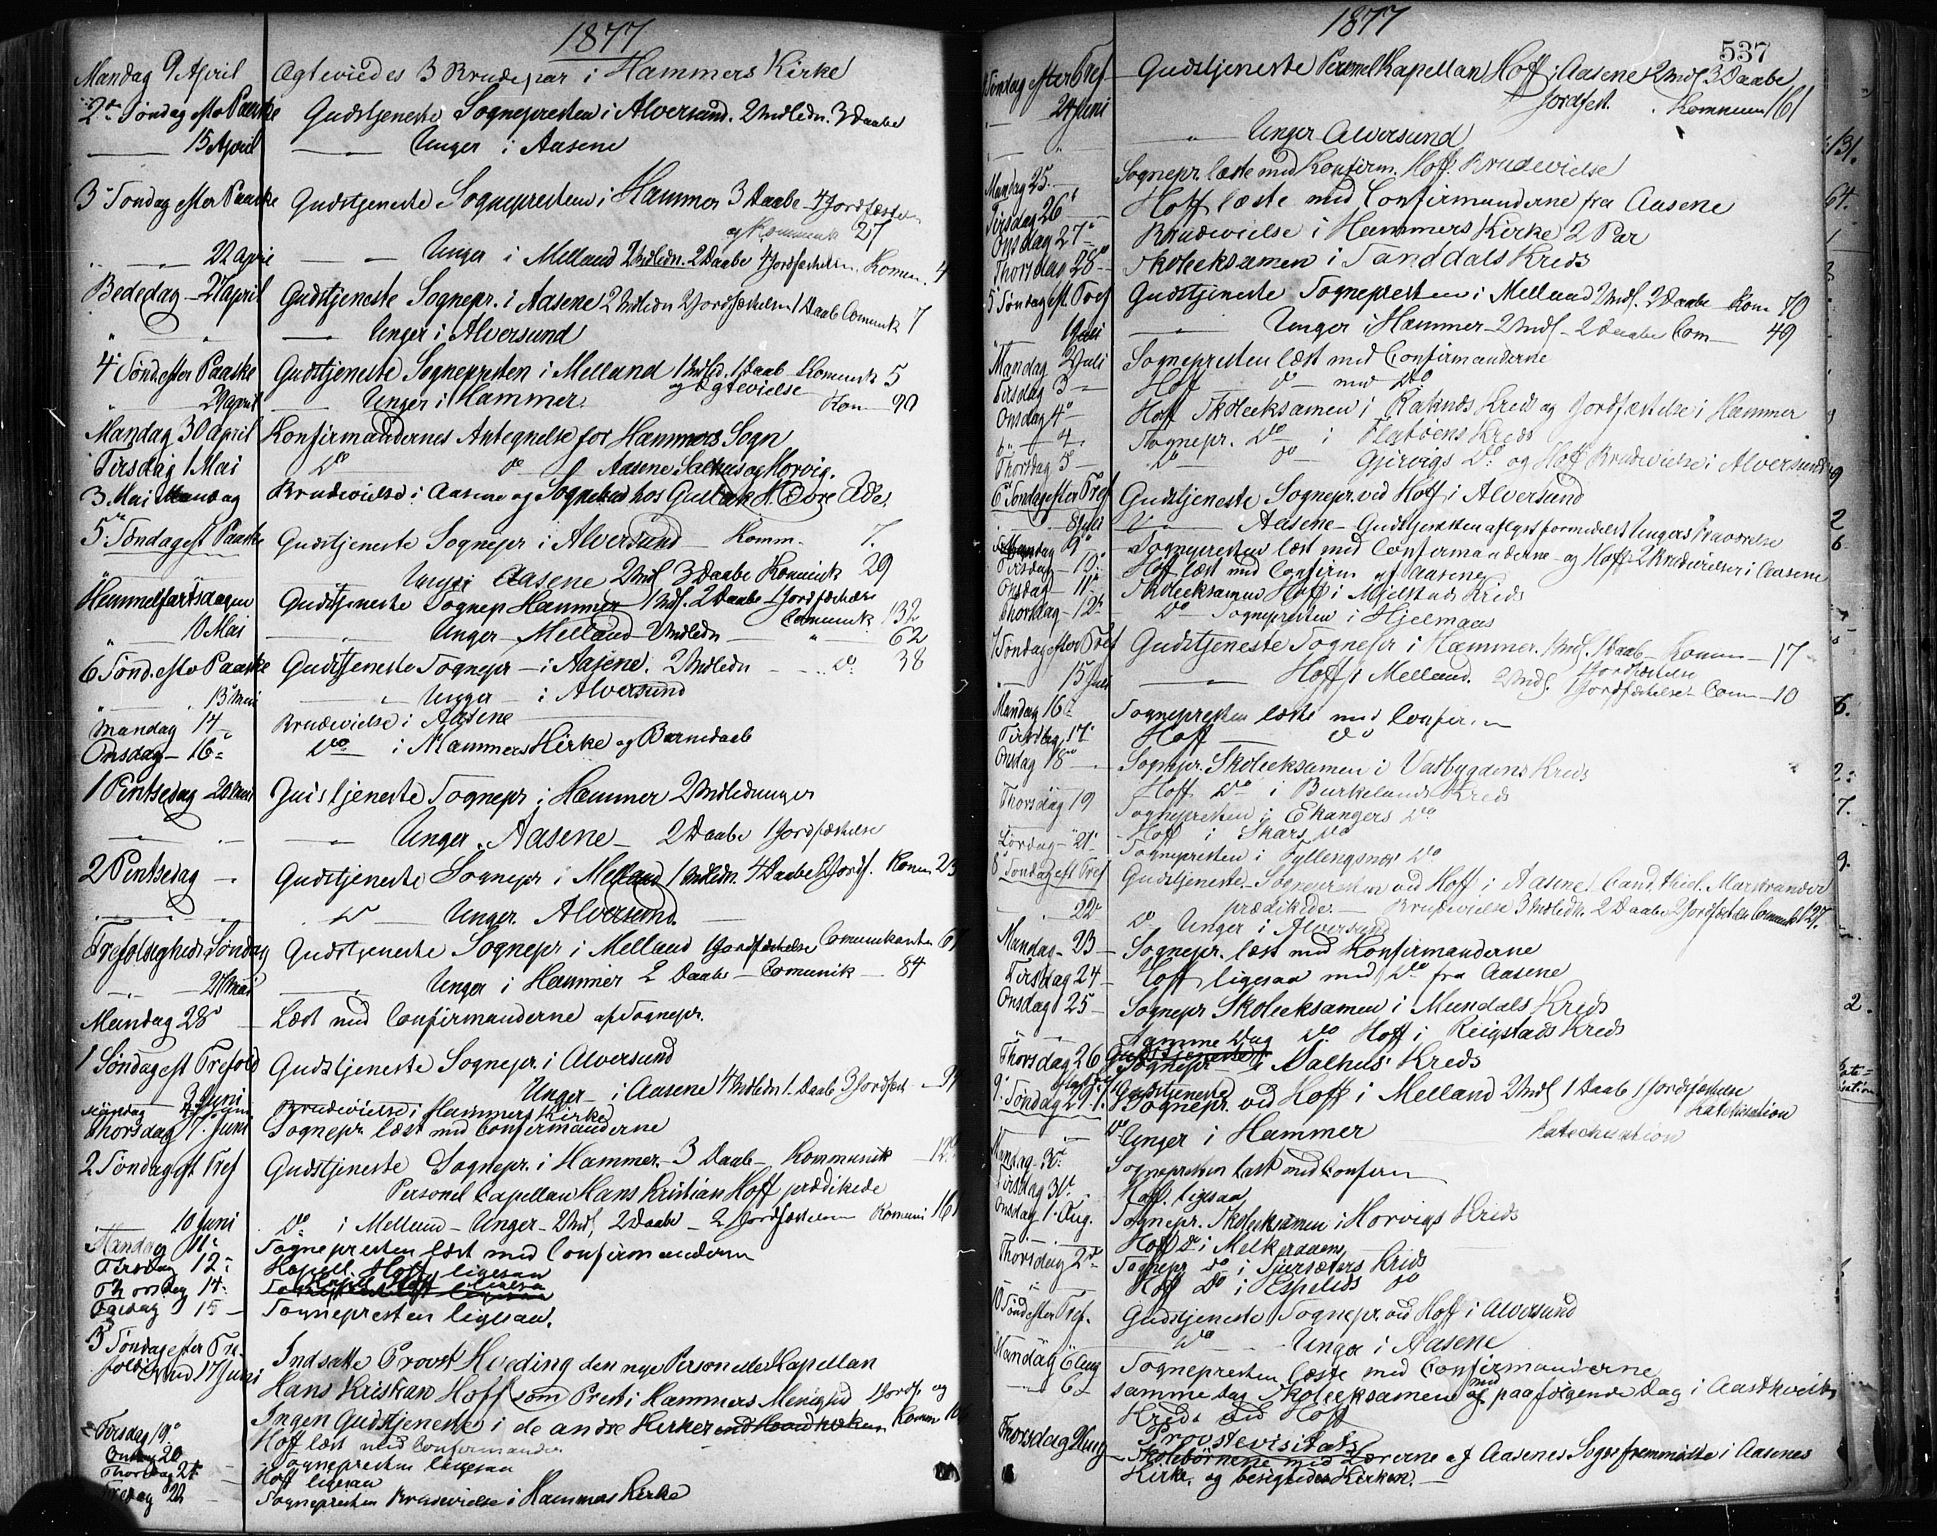 1877
Mandag 9 April Ægtevies 3 Brudepar i Hammers Kirke
2den Søndag efter Paaske Gudstjeneste Sognepresten i Alversund. 2 Indledn. 3 Daabe
15 April Unger i Aasene
3 Søndag efter Paaske Gudstjeneste Sognepresten i Hammer 3 Daabe 4 Jordfæstelser
og Kommunik 27
22 April Unger i Melland 2 Indledn. 2 Daabe 4 Jordfæstelsen. Komun. 4
Bededag 27 April Gudstjeneste Sognepr. i Aasene 2 Indledn 2 Jordfæstelsen 1 Daab Comunk 7
Unger i Alversund
4de Sønd. efter Paaske Gudstjeneste Sognepresten i Melland 1 Indled. 1 Daab Komunik 5
og Ægtevielse
29 April Unger i Hammer. Kom 90
Mandag 30 April Konfirmandernes Antegnelse for Hammers Sogn
Tirsdag 1 Mai Do do Aasene Salhus og Morvig.
3 Mai Brudevielse i Aasene og hos Gustav H. Øvre Ådes
5te Søndag eft Paaske Gudstjeneste Sognepr i Alversund Komm. 7.
Unger Aasene 2 Indl 3 Daabe Komunik 29
Himmelfartsdagen Gudstjeneste Sognepr Hammer 1 Indl. 2 Daabe 1 Jordfæstelse
Comunik 132
10 Mai Unger Melland 2 Indledn " 62
6 Sønd. efter Paaske Gudstjeneste Sognepr i Aasene. 2 Indledn do. 38
13 Mai Unger i Alversund
Mandag 14 Brudevielse i Aasene
Onsdag 16 Do i Hammers Kirke og Barnedaab
1 Pintsedag 20 Mai Gudstjeneste Sognepr i Hammer 2 Indledninger
Unger. Aasene 2 Daabe 1 Jordfæstelse
2 Pintsedag Gudstjeneste Sognepr i Melland 1 Indledn. 4 Daabe 2 Jordf. Komun. 23
Do Unger. Alversund.
Trefoldigheds Søndag Gudstjeneste Sognepr i Melland 1 Jordfæstelse Comunikanter 61
27 Mai Unger i Hammer 2 Daabe Comunik 84
Mandag 28 Læst med Confirmanderne af Sognepr.
1 Søndag eft Trefold Gudstjeneste Sognepr. i Alversund
3 Juni Unger i Aasene 4 Indledn. 1 Daab 3 Jordfest
Mandag 4 Juni Brudevielse i Hammers Kirke
Thorsdag 7 Juni Sognepr. læst med Confirmanderne
2 Søndag eft Tref Gudstjeneste Sognepr. i Hammer 3 Daab Kommunik
Personel Capellan Hans Kristian Hoff prædikede
10 Juni Do i Melland Unger 2 Indl, 2 Daabe 2 Jordfæstelser Komuni 161
Mandag 11 Sognepresten læst med Confirmanderne
Tirsdag 12 Kapell. Hoff ligesaa
Thorsdag 14 Kapel. Hoff ligesaa
Fredag 15 Sognepresten ligesaa.
3 Søndag efter Tre-
foldighed 17 Juni Indsatte Provst Hveding den nye Personelle Kapellan
Hans Kristian Hoff som Prest i Hammers Menighed 1 Jordfs og
Ingen Gudstjeneste i de andre Kirker Komun
Tirsdag 19 Hoff læst med Confirmander
Onsdag 20 Sognepresten ligesaa
Thorsdag 21 Hoff ligesaa
Fredag 22 Sognepresten Brudevielse i Hammers Kirke
1877
537
Søndag efter Tref Gudstjeneste Personel Kapellan Hoff i Aasene 2 Indl 3 Daabe
24 Juni Jordfest. Kommun 161
Unger Alversund
Mandag 25 Sognepr. læste med Konfirm. Hoff Brudevielse
Tirsdag 26 Hoff læste med Confirmanderne fra Aasene
Onsdag 27 Brudevielse i Hammers Kirke 2 Par
Thorsdag 28 Skoleeksamen i Tanddals Kreds
5 Søndag eft Tref Gudstjeneste Sognepresten i Melland 2 Indl. 2 Daabe Kom 70
1 Juli Unger i Hammer 2 Indl 2 Daabe Com 49
Mandag 2 Juli Sognepresten læst med Confirmanderne
Tirsdag 3 Hoff do med Do
Onsdag 4 Hoff Skoleeksamen i Raknæs Kreds og Jordfæstelse i Hammer
4 Sognepr. Do i Flatøens Kreds
Thorsdag 5 Do do Gjervigs Do og Hoff Brudevielse i Alversund
6 Søndag efter Tref Gudstjeneste Sognepr. ved Hoff i Alversund
8 Juli Aasene Gudstjenesten aflyst formedelst Ungers Fraværelse
Mandag 9 Sognepresten læst med Confirmanderne og Hoff 2 Brudevielser i Aasene
Tirsdag 10 Hoff læst med Confirm af Aasene
Onsdag 11 Skoleeksamen Hoff i Mjelstads Kreds
Thorsdag 12 Do Sognepresten i Hjelmaas
7 Søndag efter Tref Gudstjeneste Sognepr i Hammer. 1 Indl. 1 Daab Komun 17
15 Juli Hoff i Melland. 2 Indl. 1 Jordfæstelse Com 10
Mandag 16 Sognepresten læste med Confirm
Tirsdag 17 Hoff do
Onsdag 18 Sognepr. Skoleeksamen i Vasbygdens Kreds
Hoff Do i Burkelands Kreds
Thorsdag 19 Sognepresten i Ekangers Do
Hoff i Skars Do
Lørdag 21 Sognepresten i Fyllingsnæs Do
8 Søndag eft Tref Gudstjeneste Sognepresten ved Hoff i Aasene Cand. theol. Marstrander
22 prædikede. Brudevielse 3 Indledn. 2 Daabe 2 Jordfæstelse Communik 127.
Do Unger i Alversund
Mandag 23 Sognepr. læst med Konfirmanderne
Tirsdag 24 Hoff ligesaa med Do fra Aasene
Onsdag 25 Sognepr Skoleeksamen i Mundals Kreds
Samme Dag Do Hoff i Reigstads Kreds
Thorsdag 26 Sognepr i Salhus Kreds
9 Søndag 29 Gudstjeneste
Sognepr. ved Hoff i Melland 2 Indl 1 Daab 1 Jordfæstelse
Katekisation
Do Unger i Hammer Katekisation
Mandag 30 Sognepresten læst med Confirm
Tirsdag 31 Hoff. ligesaa
Onsdag 1 Aug. Sognepr. Skoleeksamen i Horvigs Kreds
Hoff Do i Melkeraaens
Thorsdag 2 Sognepr do i Tjursæters Kreds
Hoff Do i Espelids do
10 Sønd efter Tref. Gudstjeneste Sognepr. ved Hoff i Alversund
Do Unger i Aasene
Mandag 6 Aug Sognepresten læste med Confirmanderne
6 samme dag Skoleeksamen paafølgende Dag i Aastveits
Kreds ved Hoff
Thorsdag 9 Aug Provstevisitats
Skolebørnene med Lærerne af Aasenes Sogn fremmødte i Aasenes
Kirke, og besigtedes Kirken.